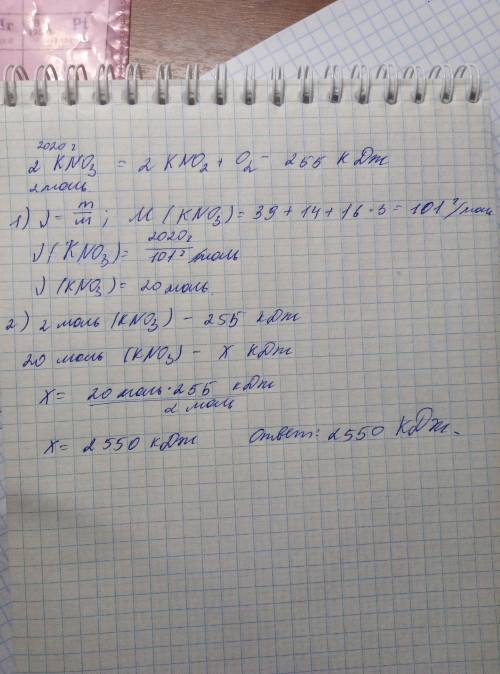 Pt
2020 г
2 KNO₃ = 2 KNO₂ + O₂ - 255 кДж
2 моль
1) ν = m/m ; M (KNO₃) = 39 + 14 + 16 · 3 = 101 г/мол
ν (KNO₃) = 2020 г / 101 г/моль
ν (KNO₃) = 20 моль.
2) 2 моль (KNO₃) - 255 кДж
20 моль (KNO₃) - x кДж
x = 20 моль · 255 кДж / 2 моль
x = 2550 кДж Ответ: 2550 кДж.